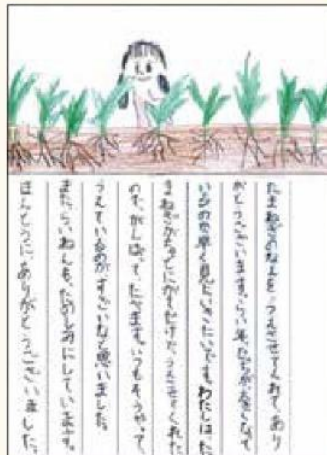 たまねぎのなえを、うえさせてくれて、あり
がとうございます。らい年、たちが大きくなって
いるのを早く見にいきたいです。わたしは、た
まねぎがちょとにがてだけど、うえさせてくれた
ので、がんばって、たべます。いつもそうやって、
うえているのがすごいなと思いました。
また、らいねんも、たのしみにしています。
ほんとうに、ありがとうございました。